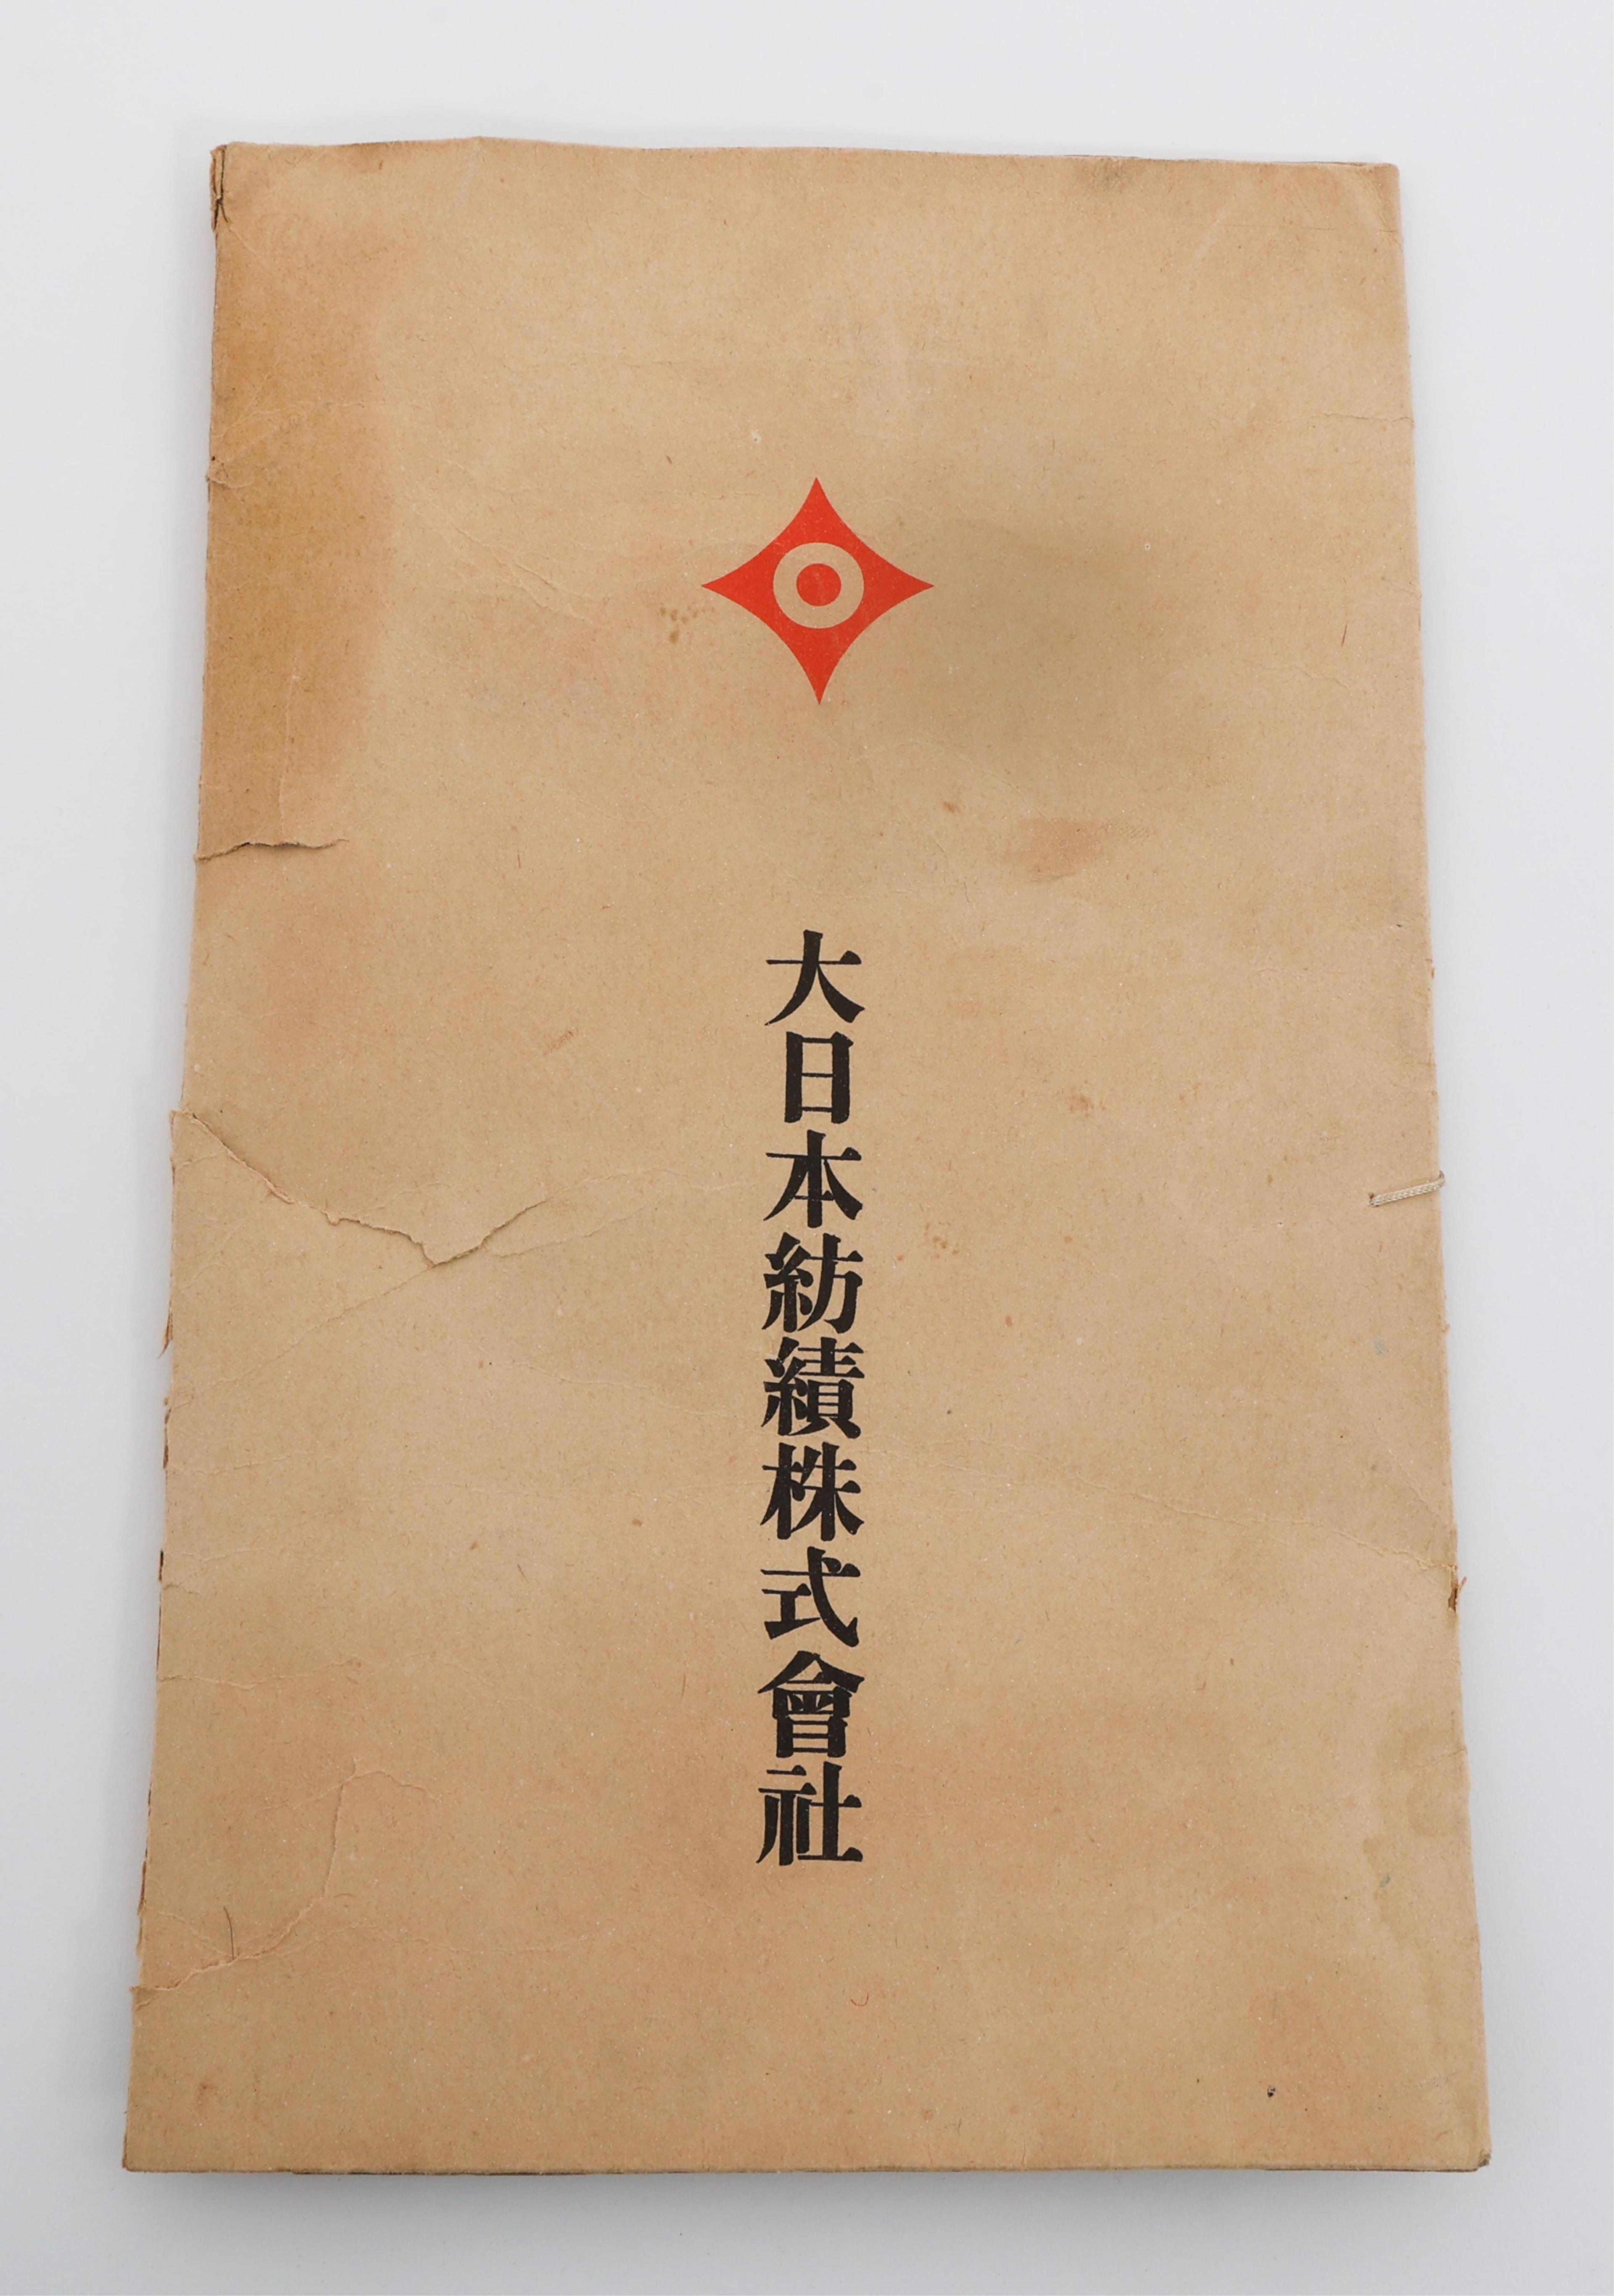 大日本紡績株式會社